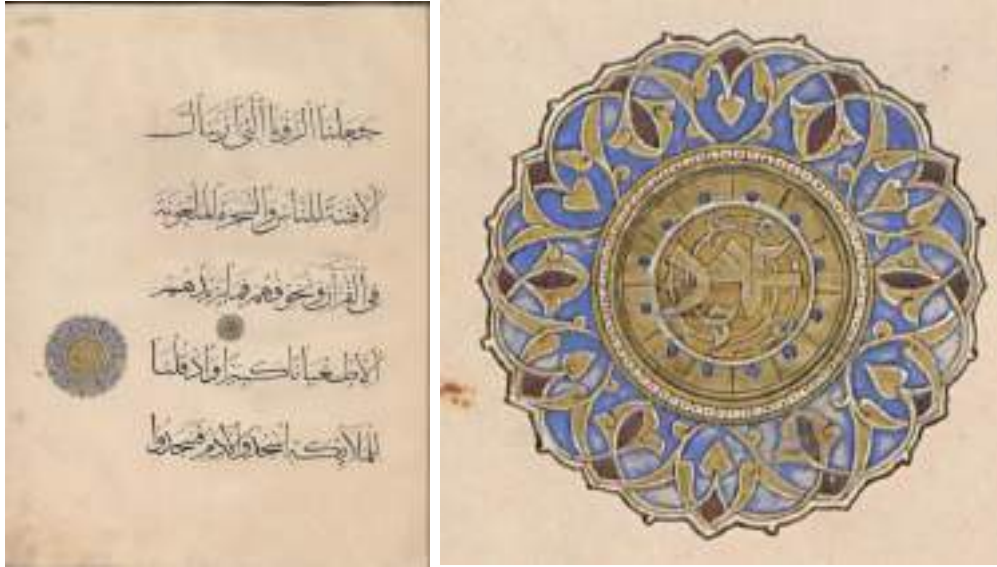 جعلنا الرؤيا التي أريناك
إلا فتنة للناس والشجرة الملعونة
في القرآن ونخوفهم فما يزيدهم
إلا طغيانا كبيرا وإذ قلنا
للملائكة اسجدوا لآدم فسجدوا